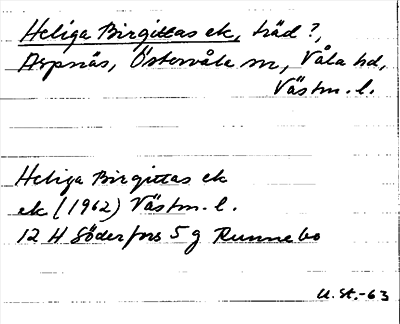 Heliga Birgittas ek, träd?,
Aspnäs, Östervåla sn, Våla hd,
Västm. l.
Heliga Birgittas ek
ek (1962) Västm. l.
12 H Söderfors 5 g Runnebo
U. St.-63